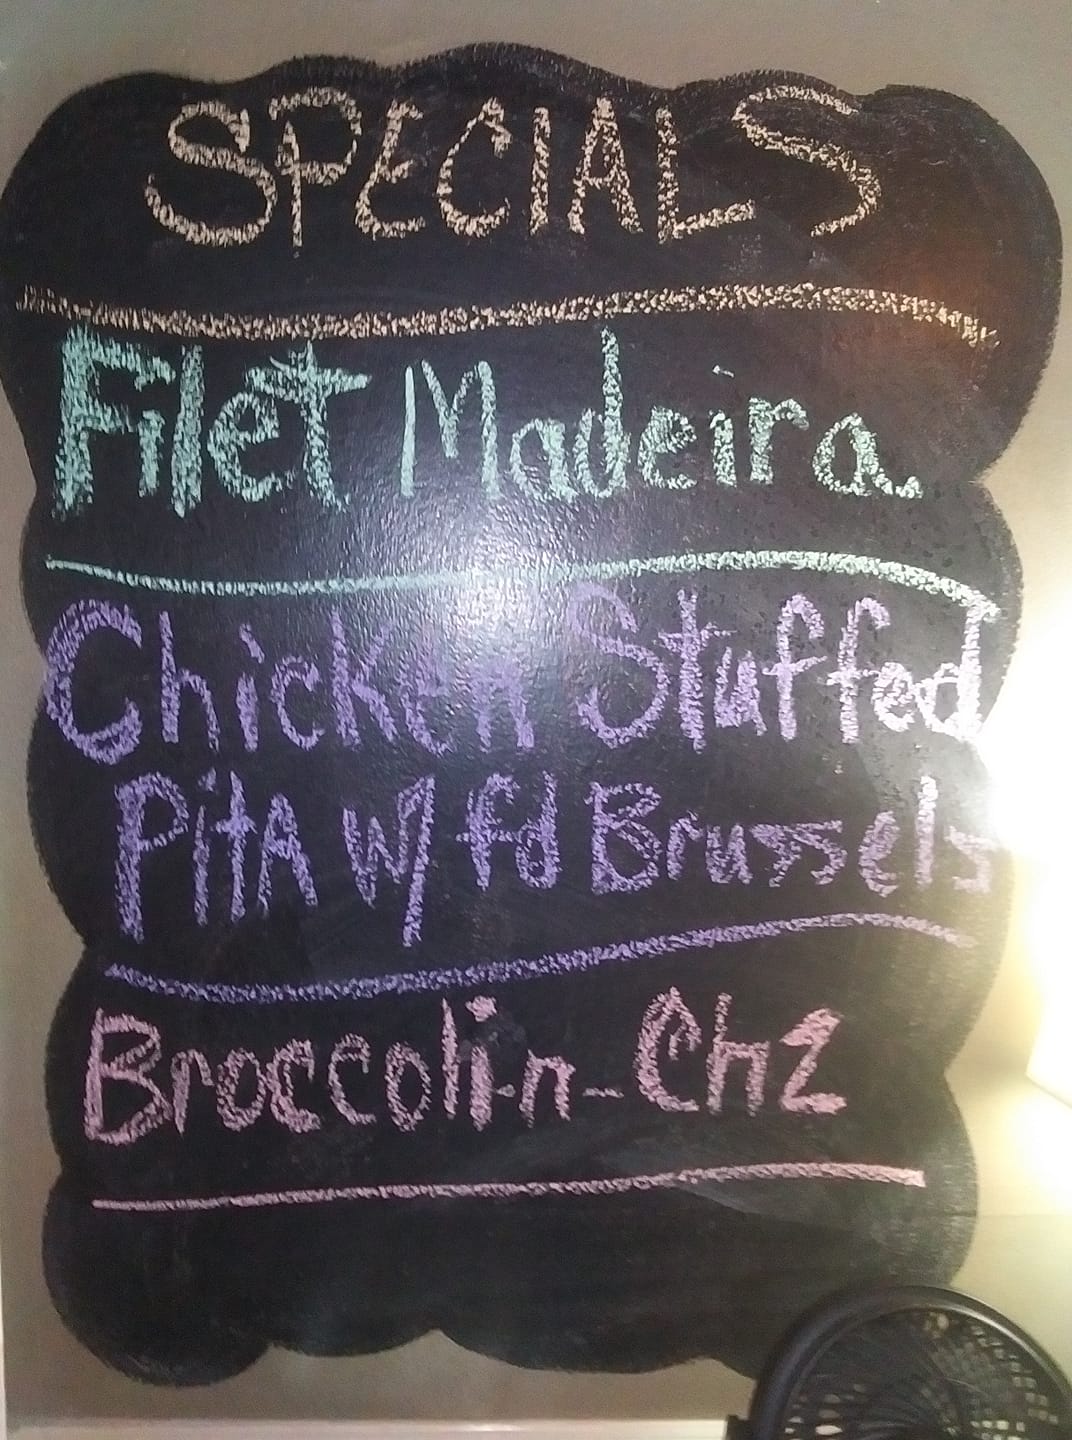 SPECIALS
Filet Madeira
Chicken Stuffed
PitA w/ fd Brussels
Broccoli-n-Chz